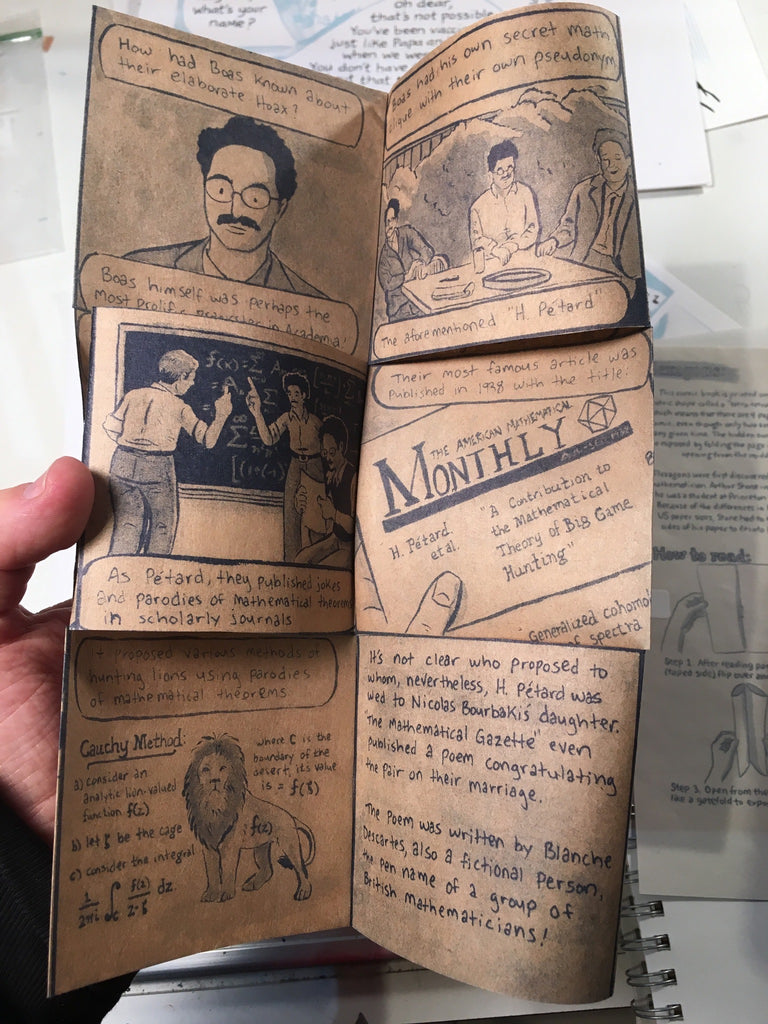 what's your
name?
oh dear,
that's not possible
You've been
just like Papa
when we we
You don't have
How had Boas known about
their elaborate Hoax?
Boas himself was perhaps the
most prolific prankster in Academia!
Boas had his own secret math
clique with their own pseudonym
The aforementioned "H. Pétard"
f(x)=
As Pétard, they published jokes
and parodies of mathematical theorems
in scholarly journals
Their most famous article was
published in 1938 with the title:
THE AMERICAN MATHEMATICAL
MONTHLY
H. Pétard
et al.
"A Contribution to
the Mathematical
Theory of Big Game
Hunting"
Generalized cohomol
of spectra
It proposed various methods of
hunting lions using parodies
of mathematical theorems
Cauchy Method:
a) consider an
analytic lion-valued
function f(z)
b) let ζ be the cage
c) consider the integral
1/2πi ∫C f(z)/z-ζ dz.
where C is the
boundary of the
desert, its value
is = f(ζ)
f(z)
It's not clear who proposed to
whom, nevertheless, H. Pétard was
wed to Nicolas Bourbaki's daughter.
"The Mathematical Gazette" even
published a poem congratulating
the pair on their marriage.
The poem was written by Blanche
Descartes, also a fictional person,
the pen name of a group of
British mathematicians!
How to read:
Step 1. After reading
(taped side) flip over and
Step 3. Open from the
like a gatefold to expo